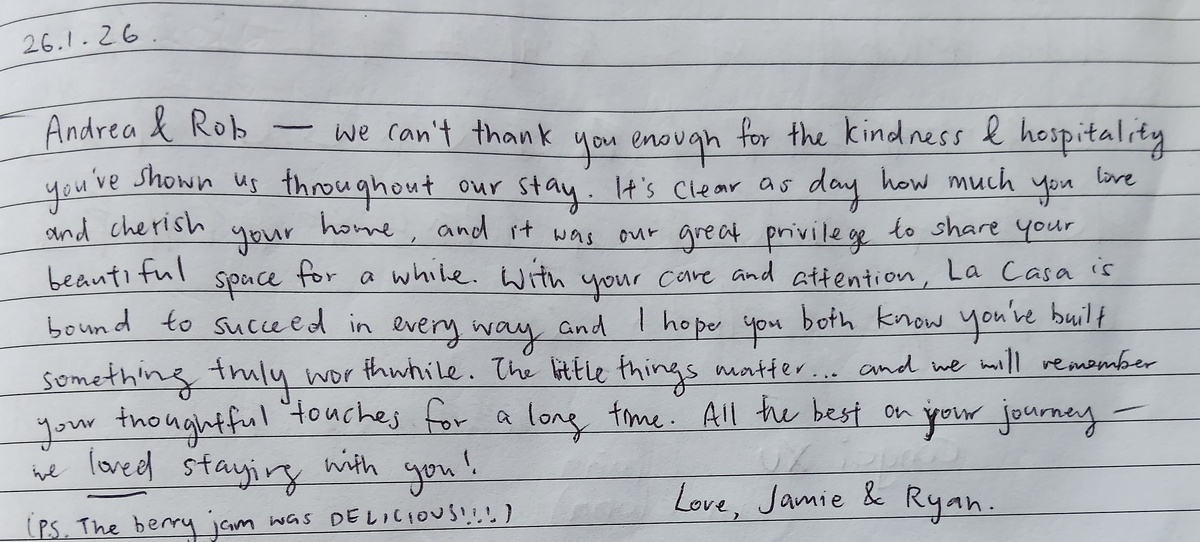 26.1.26.
Andrea & Rob — we can't thank you enough for the kindness & hospitality
you've shown us throughout our stay. It's clear as day how much you love
and cherish your home, and it was our great privilege to share your
beautiful space for a while. With your care and attention, La Casa is
bound to succeed in every way and I hope you both know you've built
something truly worthwhile. The little things matter... and we will remember
your thoughtful touches for a long time. All the best on your journey —
we loved staying with you!
Love, Jamie & Ryan.
(P.S. The berry jam was DELICIOUS!!!!)